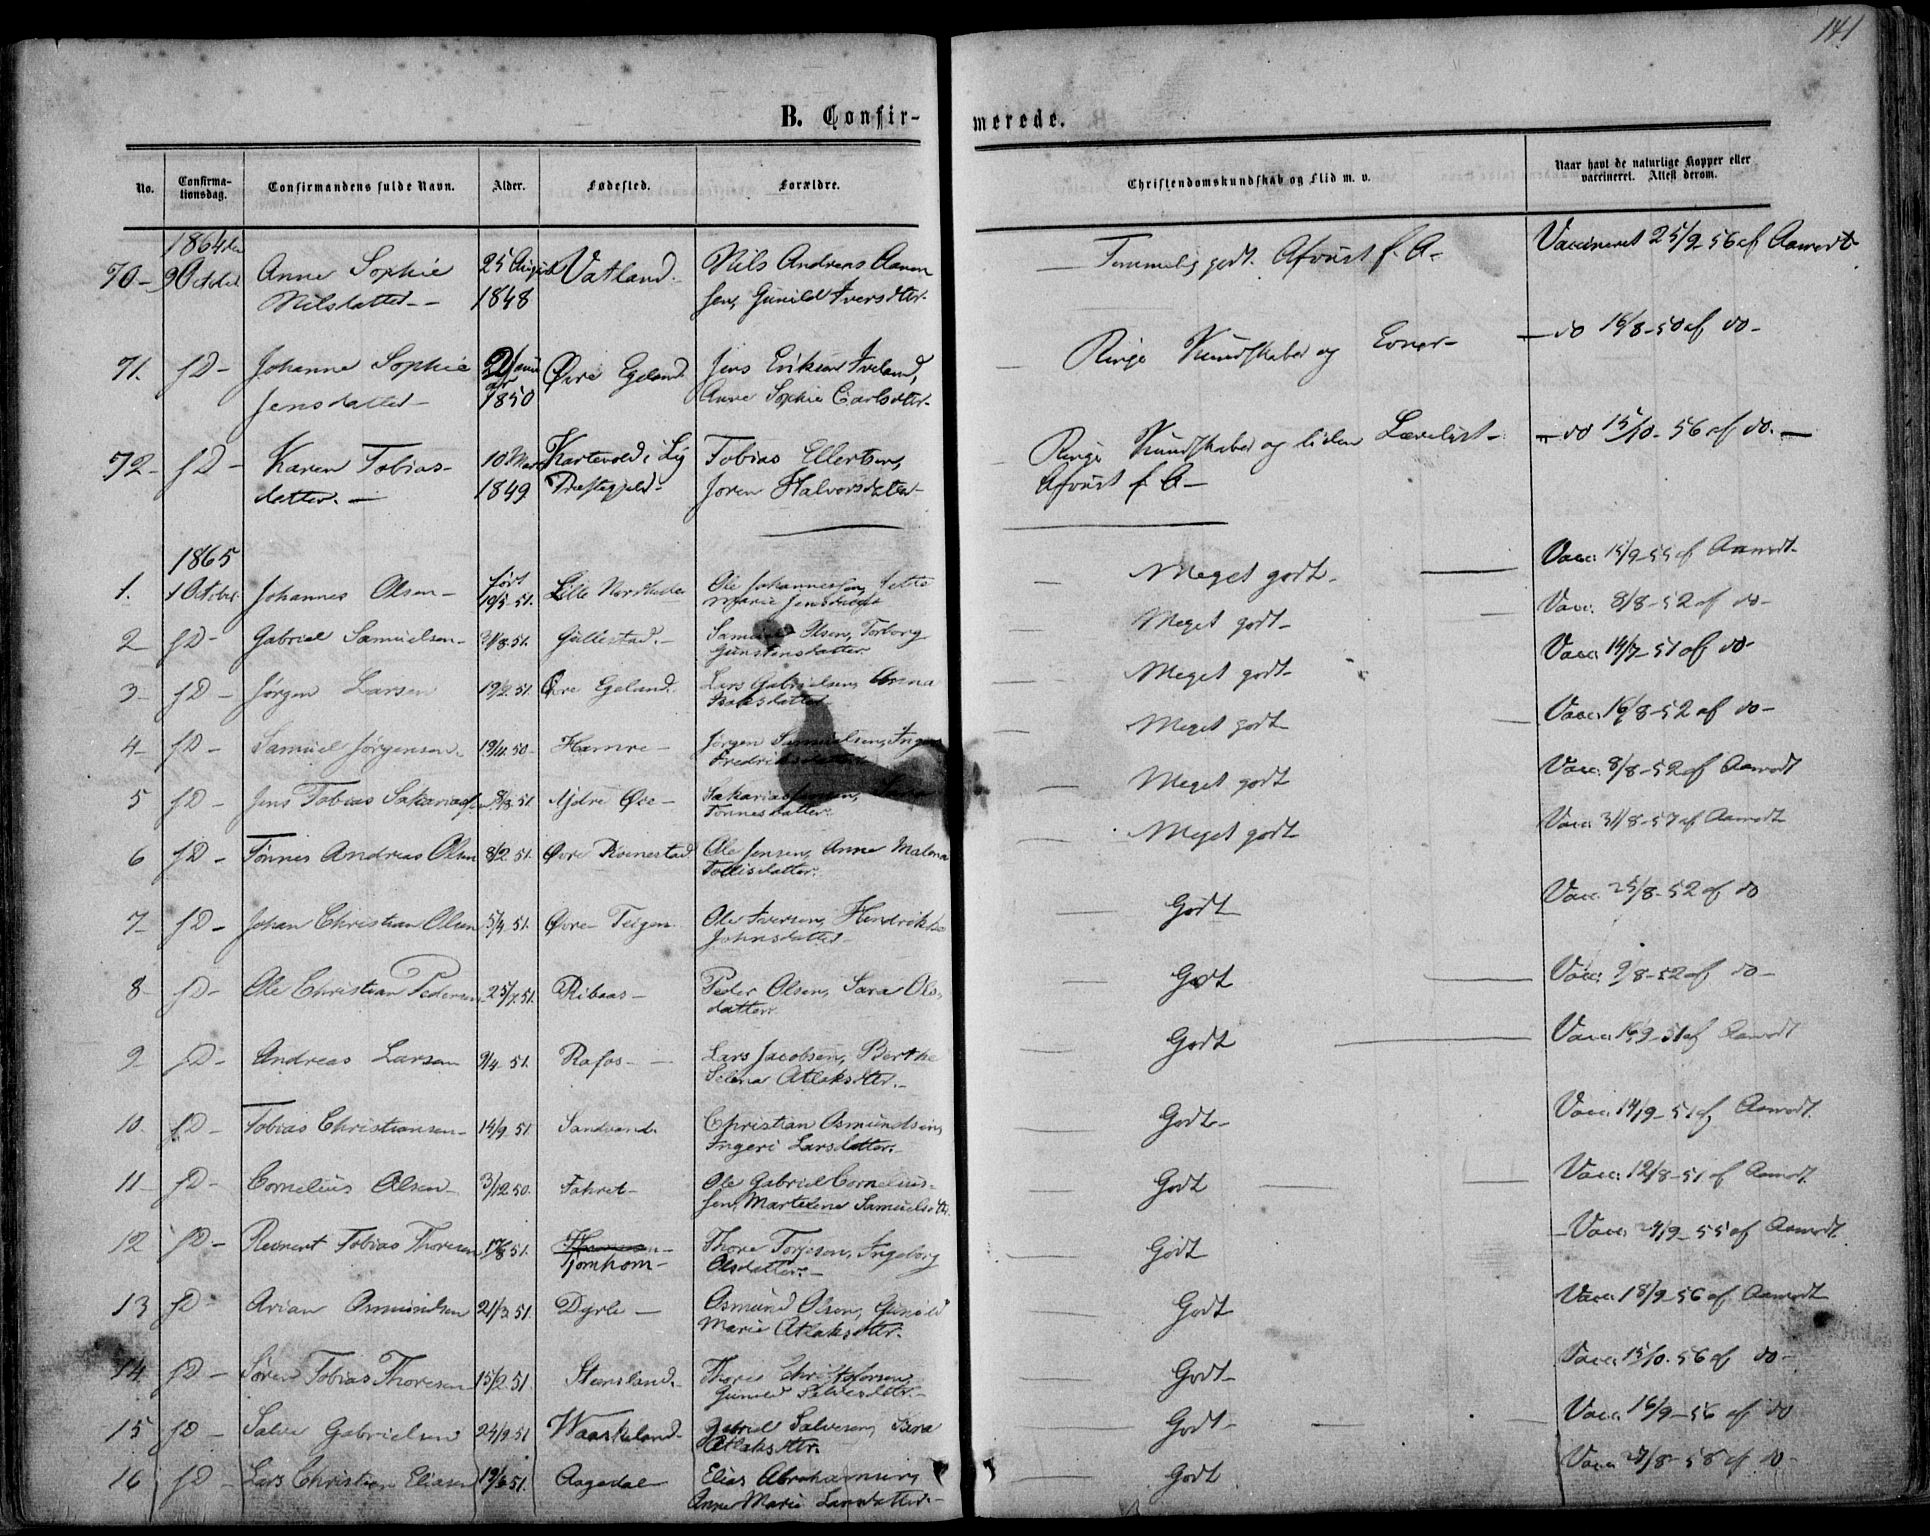 141
B. Confir-
merede.
No.
Confirma-
tionsdag.
Confirmandens fulde Navn.
Alder.
Fødested.
Forældre.
Christendomskundskab og Flid m. v.
Naar havt de naturlige Kopper eller
vaccineret. Attest derom.
1864 den
70- 9 October Anne Sophie 25 August Vatland. Nils Andreas Aanen Temmelig godt. Vaccineret 25/9 56 af Aamodt-
Nilsdatter- 1848 sen, Gunild Iversdtter-
71. fD- Johanne Sophie Øvre Egeland Jens Eriksen Iveland, Ringe Kundskaber og Evner- do 16/8-50 af do-
Jensdatter- 1850 Anne Sophie Carlsdtter-
72- fD- Karen Tobias- 10 Marts i Tobias Ellertsen, Ringe Kundskaber og liden Lærelyst- do 15/10-56 af do.-
datter.- 1849 Præstegjeld- Joren Halvorsdatter-
1865
1. 1 October Johannes Olsen- født Lille Ole Johannessen, Meget godt- Vacc. 15/9-55 af Aamodt-
19/5-51. Marie Jensdatter
2- fD- Gabriel Samuelsen- 31/8.51. Gullestad.- Samuel Olsen, Torborg Meget godt- Vacc. 8/8-52 af do-
Gunstensdatter
3- fD- Jørgen Larsen 19/2.51. Øvre Egeland. Lars Gabrielsen, Anna Meget godt- Vacc. 14/7-51 af do-
4- fD- Samuel Jørgensen- 19/11.50- Hamre- Jørgen Samuelsen, Inger Meget godt Vacc. 16/8-52 af do-
Fredriksdatter
5 fD- Jens Tobias Sakarias 51. Øie- Meget godt Vacc. 8/8-52 af Aamodt
Tønnesdatter.
6 fD- Tønnes Andreas Olsen 8/2.51. Øvre Roenestad Ole Jensen, Anne Malena Meget godt Vacc. 31/8-57 af Aamodt
7- fD- Johan Christian Olsen 5/4.51. Øvre Teigen Ole Iversen, Godt Vacc. 25/8-52 af do
Johnsdatter-
8- fD- Ole Christian Pedersen 25/7.51. Ribaas- Peder Olsen, Sara Ols- Godt Vacc. 9/8-52 af do-
datter.
9- fD- Andreas Larsen 9/4.51. Rafos- Lars Jacobsen, Berthe Godt Vacc. 15/9-51 af Aamodt
Selena Atlaksdtter.-
10. fD- Tobias Christiansen- 14/9.51 Sandvand. Christian Osmundsen, Godt- Vacc. 14/9-51 af Aamodt.
Ingeri Larsdatter.
11- fD- Cornelius Olsen- 3/12.50. Ole Gabriel Cornelius- Godt Vacc. 12/8-51 af Aamodt.
sen, Samuelsdtr.
12 fD- Reinert Tobias Thoresen 17/8 51. Tjomhom- Thore Torjesen, Ingeborg Godt Vacc. 24/9-55 af Aamodt.
Olsdatter.-
13 fD- Arian Osmundsen 21/3.51. Dyrli- Osmund Olsen, Gunild Godt Vacc. 18/9-56 af Aamodt
Marie Atlaksdtter.
14. fD- Søren Tobias Thoresen 15/2.51. Stensland.- Thore Christofersen, Godt- Vacc. 15/10.56 af do-
15 fD- Salve Gabrielsen 24/9.51 Waaskeland- Gabriel Salvesen, Godt- Vacc. 16/9-56 af do
Atlaksdtter.
16 fD- Lars Christian Eliasen 19/6 51. Aagedal- Elias Abrahamsen, Godt Vacc. 27/8-58 af do-
Anne Marie Larsdatter.-